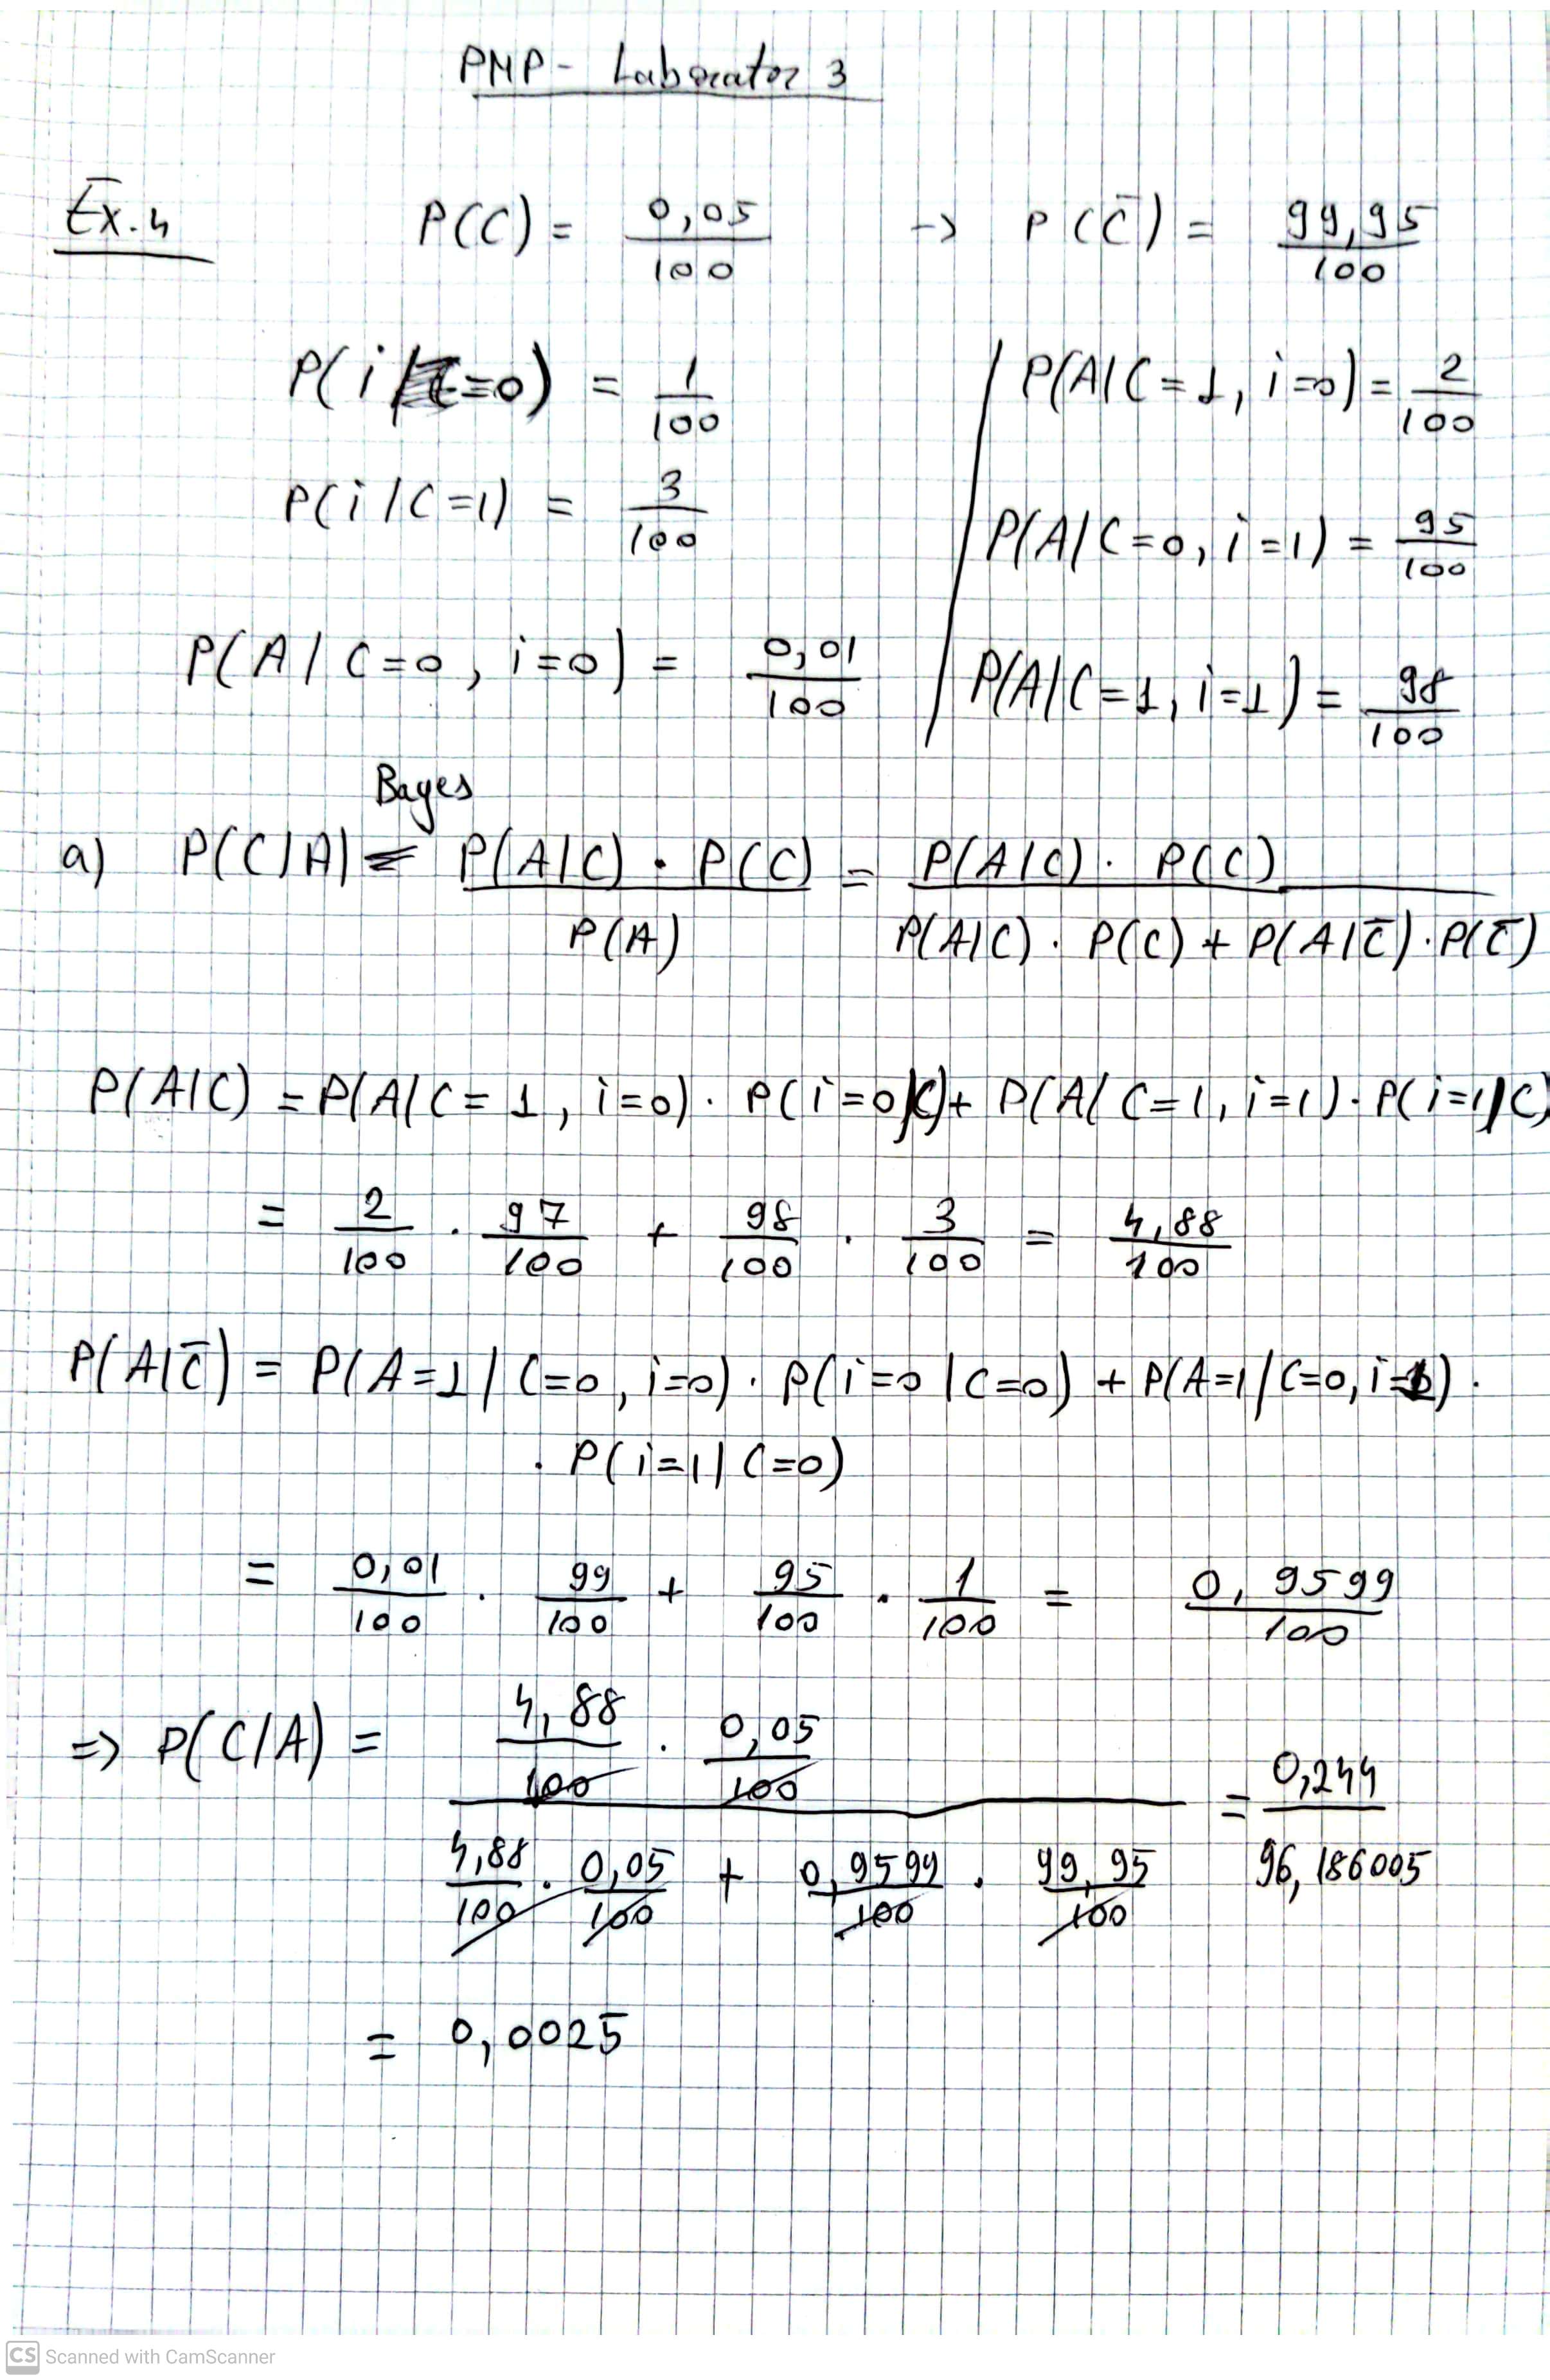 PMP - Laborator 3
Ex. 4 P(C) = 0,05/100 -> P(C̄) = 99,95/100
P(i/C=0) = 1/100
P(i/C=1) = 3/100
P(A/C=0, i=0) = 0,01/100
P(A/C=1, i=0) = 2/100
P(A/C=0, i=1) = 95/100
P(A/C=1, i=1) = 98/100
Bayes
a) P(C/A) = P(A/C) · P(C) / P(A) = P(A/C) · P(C) / P(A/C) · P(C) + P(A/C̄) · P(C̄)
P(A/C) = P(A/C=1, i=0) · P(i=0/C) + P(A/C=1, i=1) · P(i=1/C)
= 2/100 · 97/100 + 98/100 · 3/100 = 4,88/100
P(A/C̄) = P(A=1/C=0, i=0) · P(i=0/C=0) + P(A=1/C=0, i=1) ·
· P(i=1/C=0)
= 0,01/100 · 99/100 + 95/100 · 1/100 = 0,9599/100
=> P(C/A) = 4,88/100 · 0,05/100 / 4,88/100 · 0,05/100 + 0,9599/100 · 99,95/100 = 0,244/96,186005
= 0,0025
CS Scanned with CamScanner